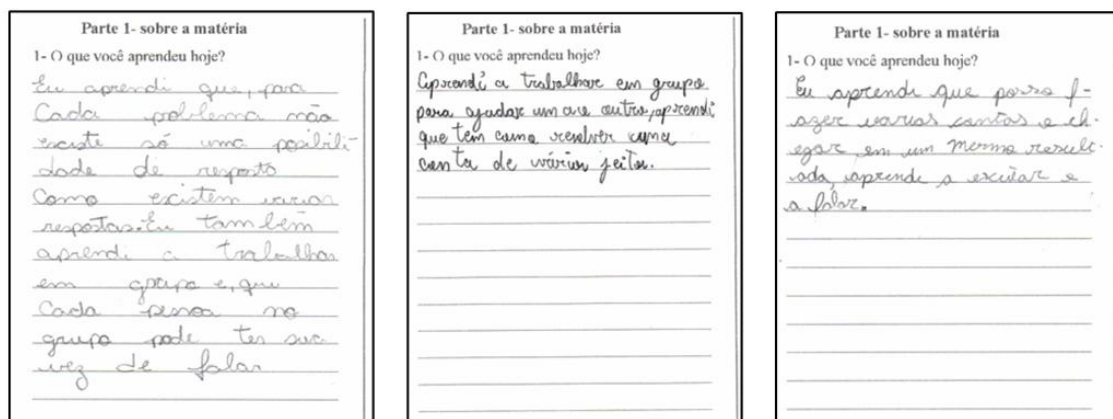 Parte 1- sobre a matéria
1- O que você aprendeu hoje?
Eu aprendi que, para
Cada poblema não
exciste só uma posibili-
dade de resposta
Como excistem varias
respostas. Eu também
aprendi a trabalhar
em grupo e, que
Cada pessoa no
grupo pode ter sua
vez de falar
Parte 1- sobre a matéria
1- O que você aprendeu hoje?
Aprendi a trabalhar em grupo
para ajudar um ao outro, aprendi
que tem como resolver uma
conta de vários jeitos.
Parte 1- sobre a matéria
1- O que você aprendeu hoje?
Eu aprendi que posso f-
azer varias contas e ch-
egar em um mesmo result-
ado, aprende a escutar e
a falar.